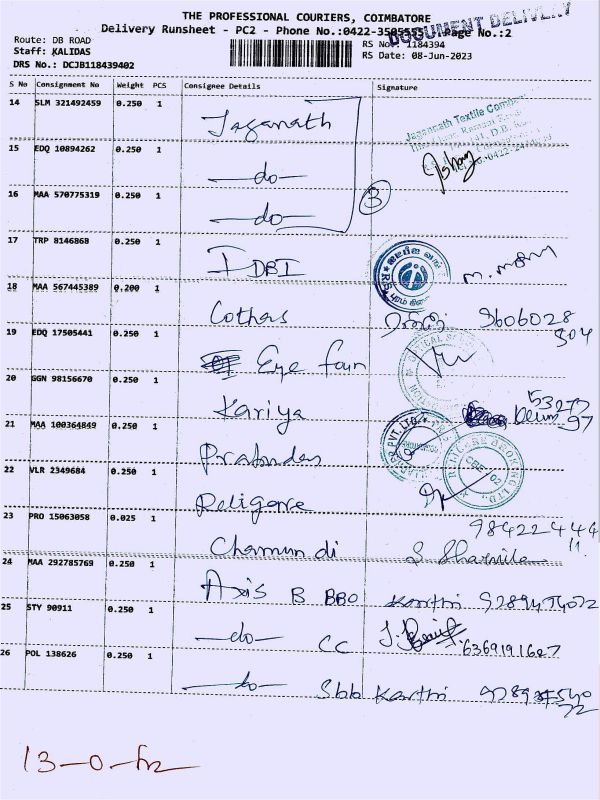 THE PROFESSIONAL COURIERS, COIMBATORE
Delivery Runsheet - PC2 - Phone No.:0422-3505555 Page No.:2
DOCUMENT DELIVERY
Route: DB ROAD RS No.: 1184394
Staff: KALIDAS RS Date: 08-Jun-2023
DRS No.: DCJB118439402
S No Consignment No Weight PCS Consignee Details Signature
14 SLM 321492459 0.250 1 Jaganath
Jagannath Textile Company
15 EDQ 10894262 0.250 1 —do—
16 MAA 570775319 0.250 1 —do—
3
17 TRP 8146868 0.250 1 IDBI
18 MAA 567445389 0.200 1 Cothas 9606028
304
19 EDQ 17505441 0.250 1 Eye fan
20 GGN 98156670 0.250 1 Kariya 53273
97
21 MAA 100364849 0.250 1
22 VLR 2349684 0.250 1 Religare
23 PRO 15063058 0.025 1 Chamundi S. Sharmila 98422444
11
24 MAA 292785769 0.250 1 Axis B BBO Karthi
25 STY 90911 0.250 1 —do— CC 6369191627
26 POL 138626 0.250 1 —do— Sbb Karthi
13-0-